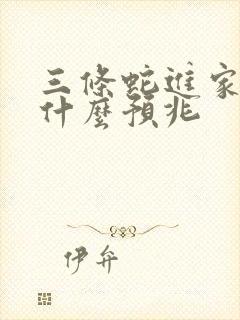 三條蛇進家
什麼預兆
伊弁